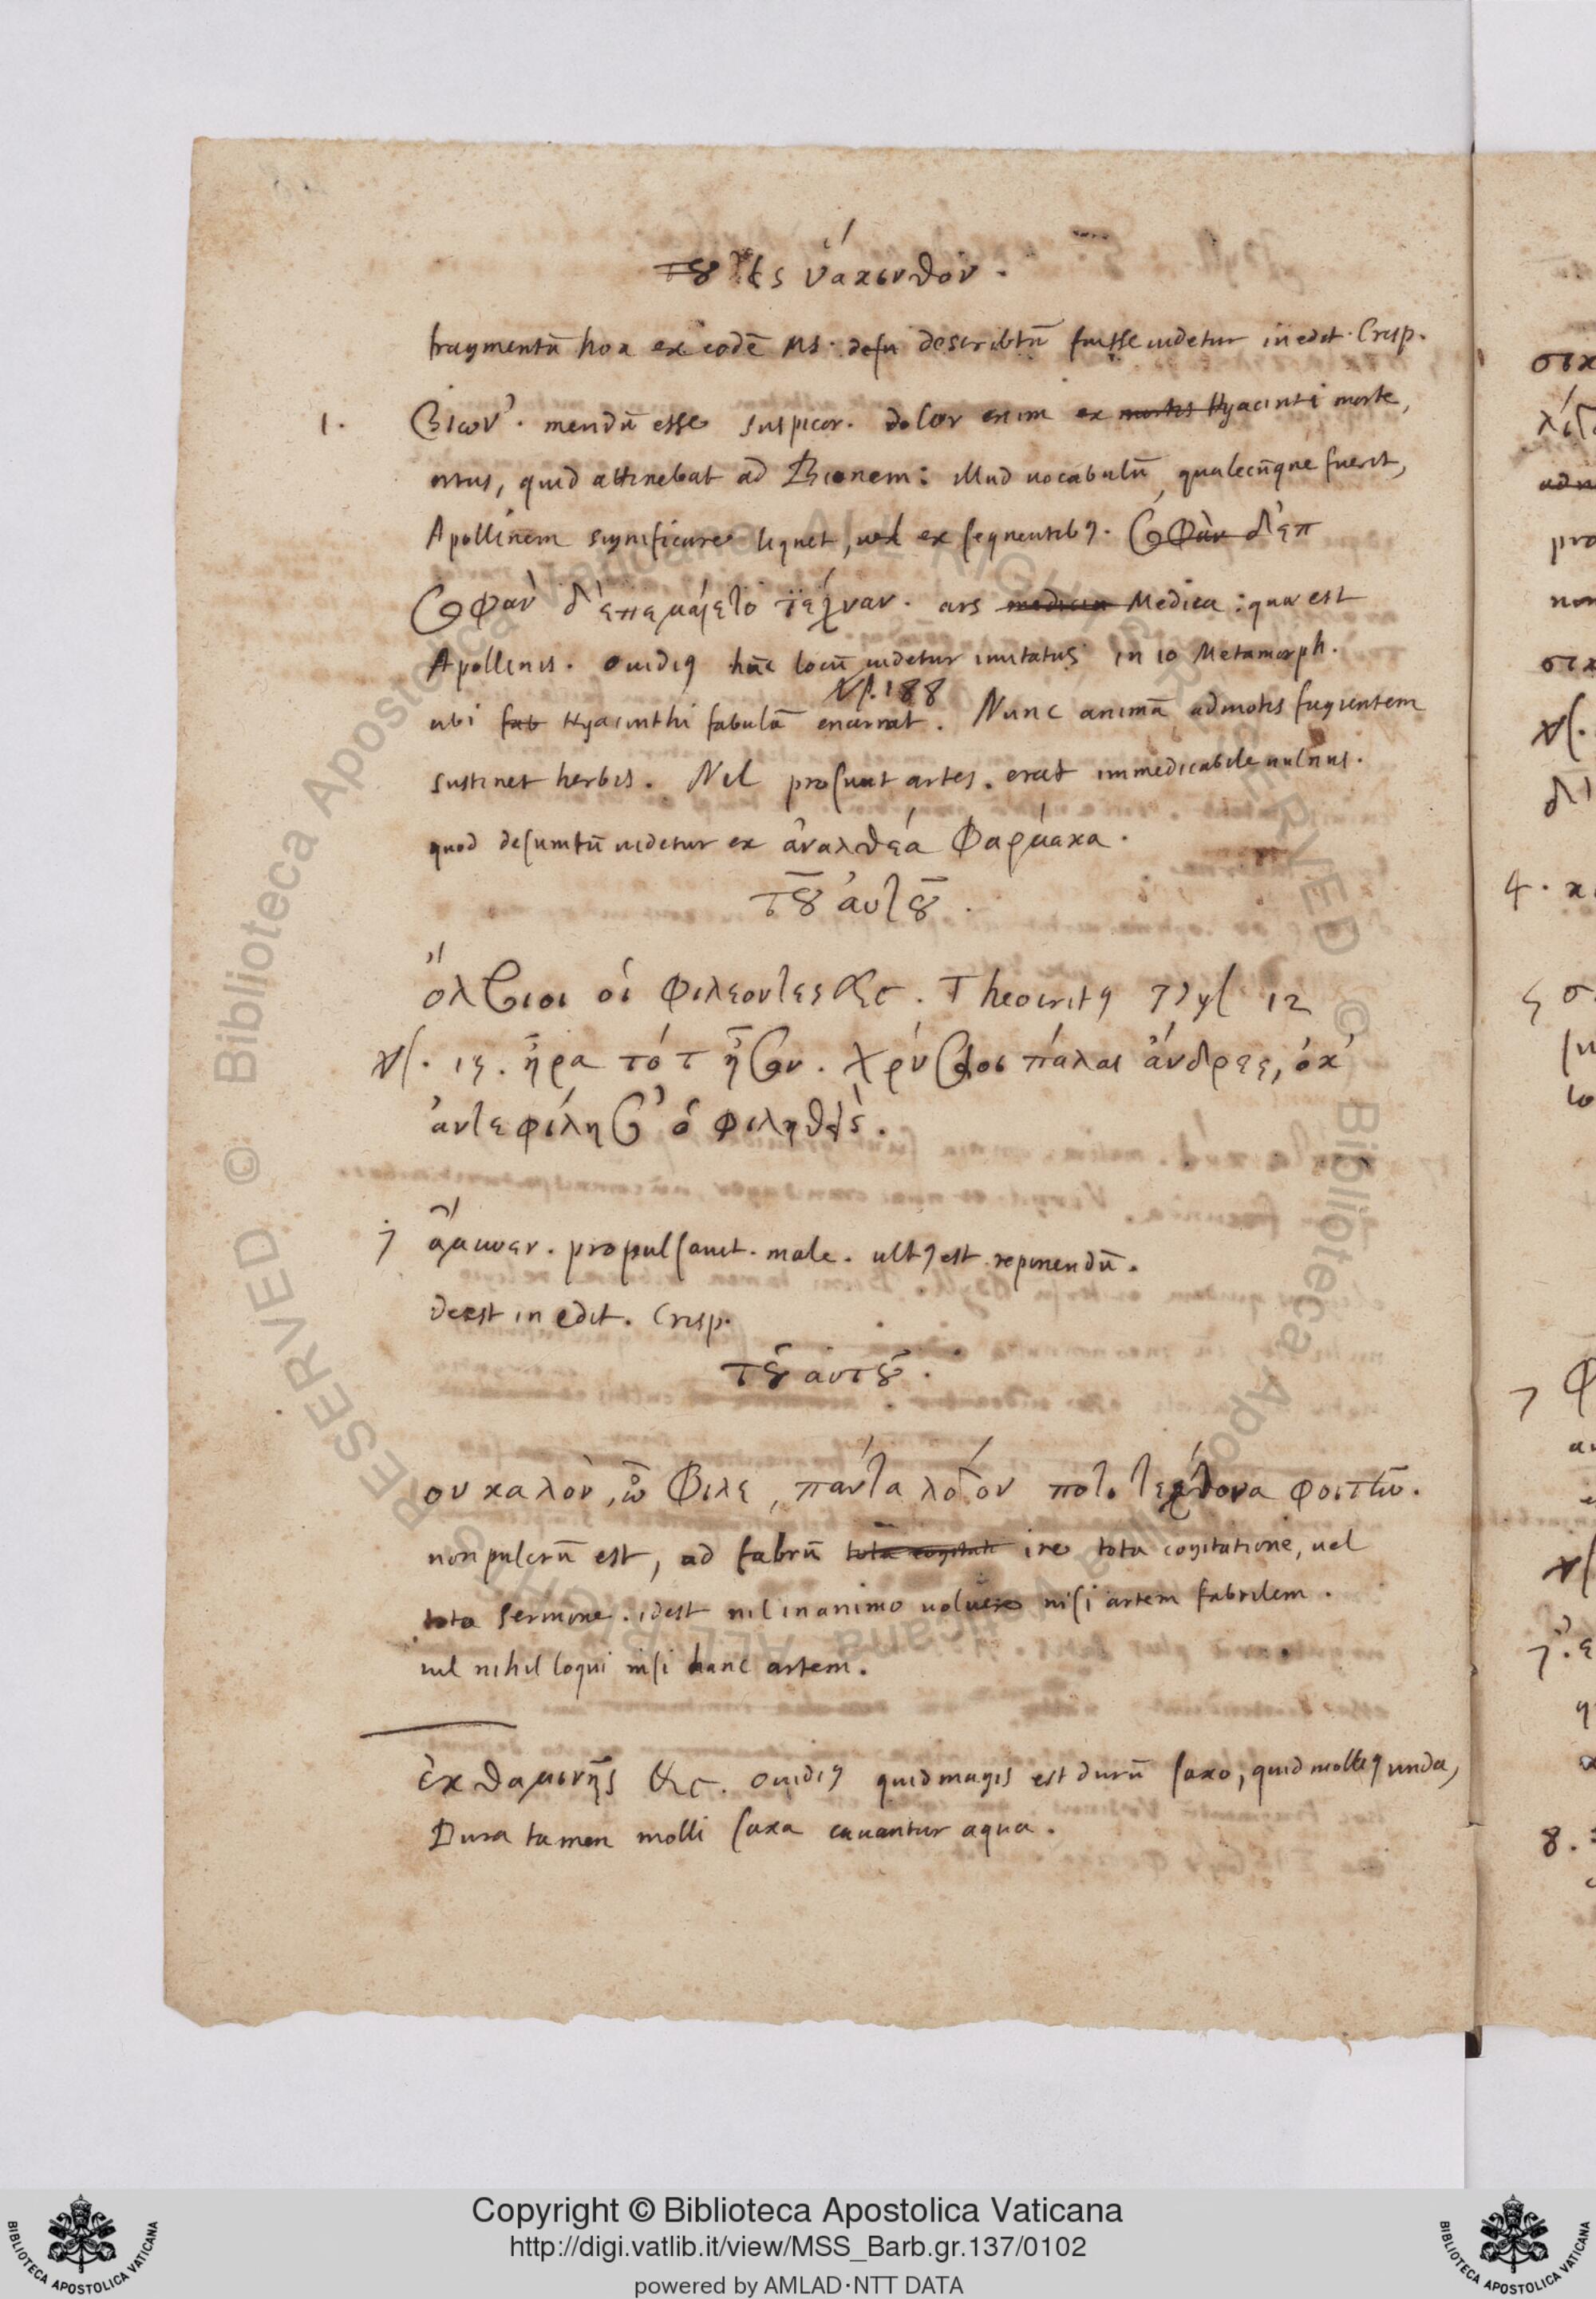 του εἰς ὑάκινθον.
fragmentū hoc ex eodē MS. desu descriptū fuisse uidetur in edit. Crisp.
1. βίων'. mendū esse suspicor. dolor enim ex mortis Hyacinti morte,
ortus, quid attinebat ad Bionem: illud uocabulū, qualecūque fuerit,
Apollinem significare liquet, uel ex sequentib9. σοφὰν δ'επ
σοφὰν δ' ἐπεμαίετο τέχναν. ars medicin Medica: quae est
Apollinis. Ouidi9 hūc locū uidetur imitatus in 10 Metamorph.
vs. 188
ubi fab Hyacinthi fabulā enarrat. Nunc animā admotis fugientem
sustinet herbis. Nil prosunt artes. erat immedicabile uulnus.
quod desumtū uidetur ex ἀναλθέα φάρμακα.
τοῦ ἀυτοῦ.
ὄλβιοι οἱ φιλέοντες &c. Theocrit9 Idyl 12
vs. 15. ἦρα τότ ἦσαν. χρύσιοι πάλαι ἄνδρες, ὁκ'
ἀντεφίλησ' ὁ φιληθείς.
7 ἄμυνεν. propulsauit. male. ult9 est reponendū.
deest in edit. Crisp.
τοῦ αυτοῦ.
ου καλὸν, ὦ φίλε, πάντα λόγον ποτὶ τέκτονα φοιτῶ.
non pulcrū est, ad fabrū tota cogitati ire tota cogitatione, uel
toto sermone. idest nil in animo uoluere nisi artem fabrilem.
uel nihil loqui nisi hanc artem.
ἐκ θαμινῆς &c. Ouidi9 quid magis est durū saxo, quid molli9 unda,
Dura tamen molli saxa cauantur aqua.
4.
7
7.
8.
© Biblioteca Apostolica Vaticana ALL RIGHTS RESERVED
Copyright © Biblioteca Apostolica Vaticana
http://digi.vatlib.it/view/MSS_Barb.gr.137/0102
powered by AMLAD·NTT DATA
BIBLIOTECA APOSTOLICA VATICANA
BIBLIOTECA APOSTOLICA VATICANA